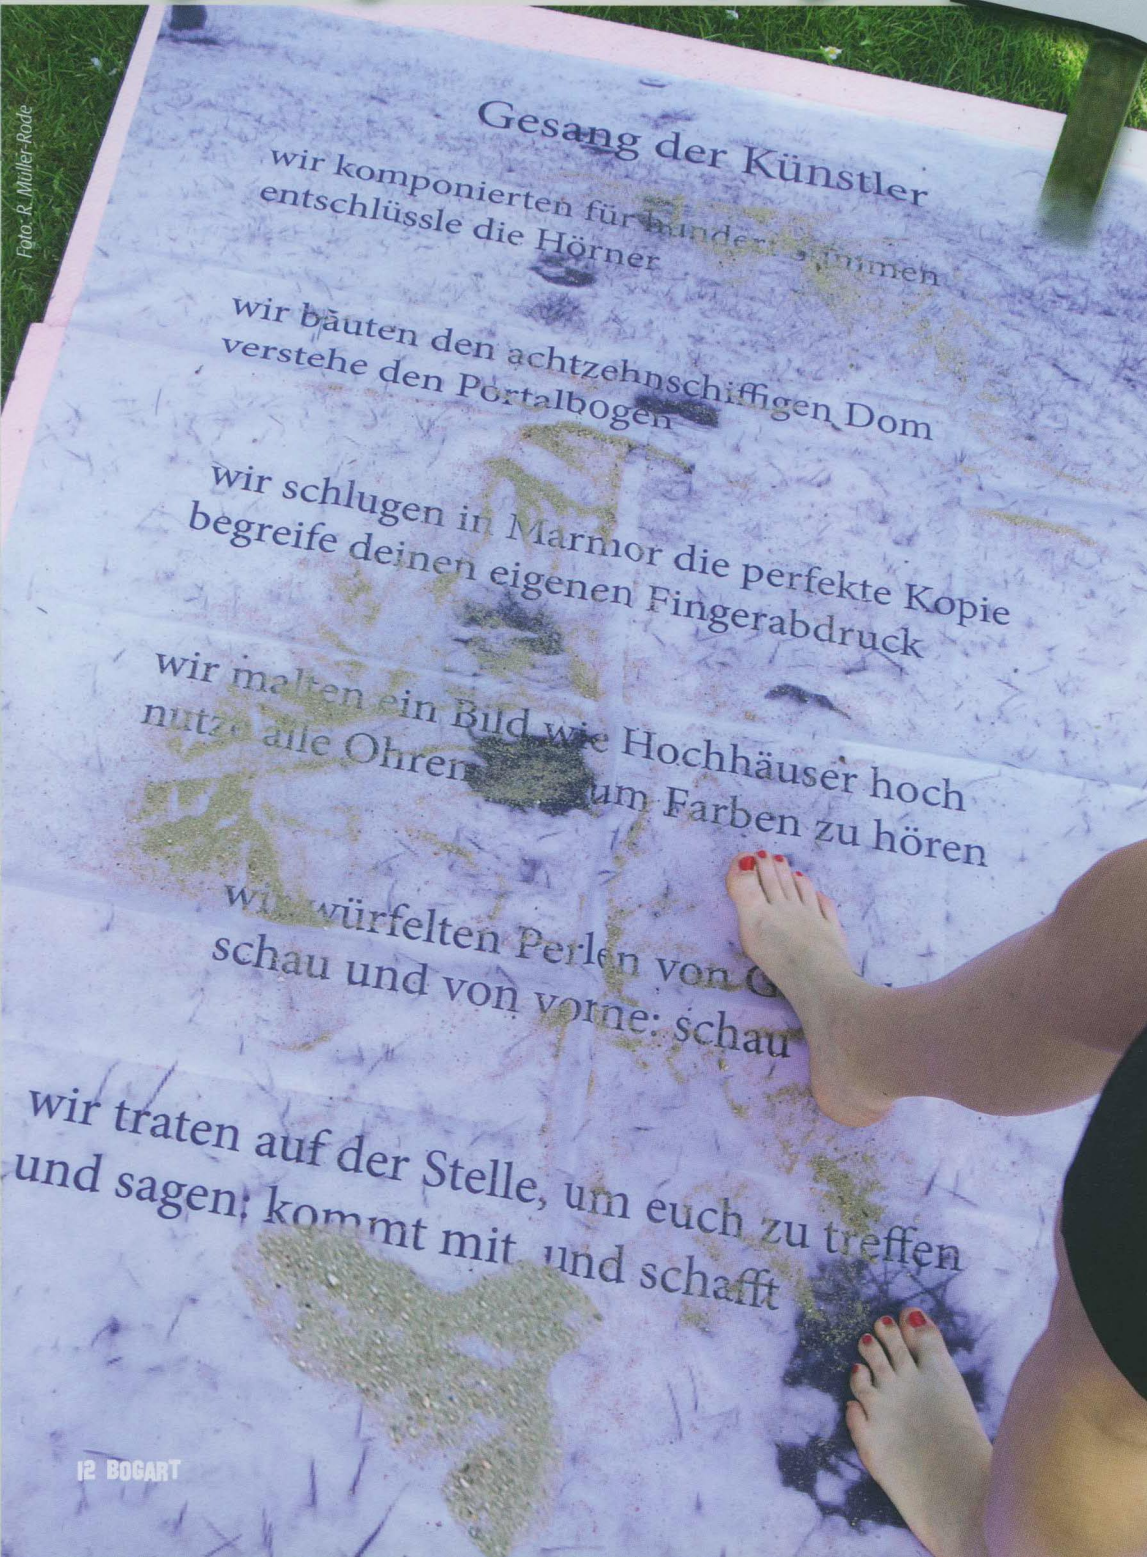 Foto: R. Müller-Rode
Gesang der Künstler
wir komponierten für hundert Stimmen
entschlüssle die Hörner
wir bauten den achtzehnschiffigen Dom
verstehe den Portalbogen
wir schlugen in Marmor die perfekte Kopie
begreife deinen eigenen Fingerabdruck
wir malten ein Bild wie Hochhäuser hoch
nutze alle Ohren um Farben zu hören
wir würfelten Perlen von
schau und von vorne: schau
wir traten auf der Stelle, um euch zu treffen
und sagen: kommt mit und schafft
12 BOGART